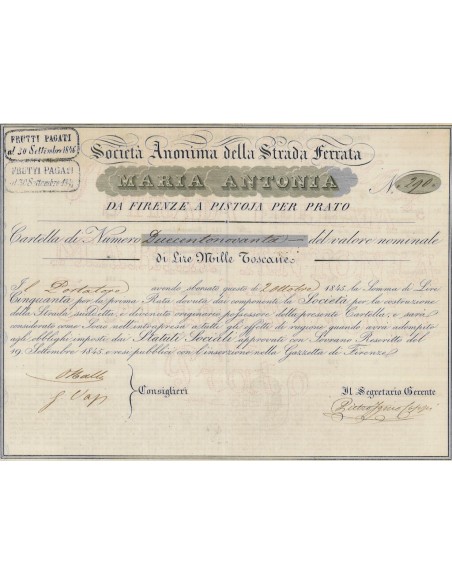 FRUTTI PAGATI
al 20 Settembre 1846
FRUTTI PAGATI
Società Anonima della Strada Ferrata
MARIA ANTONIA
N. 290.
DA FIRENZE A PISTOJA PER PRATO
Cartella di Numero Duecentonovanta del valore nominale
di Lire Mille Toscane
Il Portatore avendo sborsato questo dì 2 Ottobre 1845. la Somma di Lire
Cinquanta per la prima Rata dovuta dai componenti la Società per la costruzione
della Strada suddetta, è divenuto originario possessore della presente Cartella; e sarà
considerato come Socio nell'intrapresa a tutti gli effetti di ragione quando avrà adempito
agli obblighi imposti dai Statuti Sociali approvati con Sovrano Rescritto del
19. Settembre 1845 e resi pubblici con l'inserzione nella Gazzetta di Firenze
Consiglieri
Il Segretario Gerente